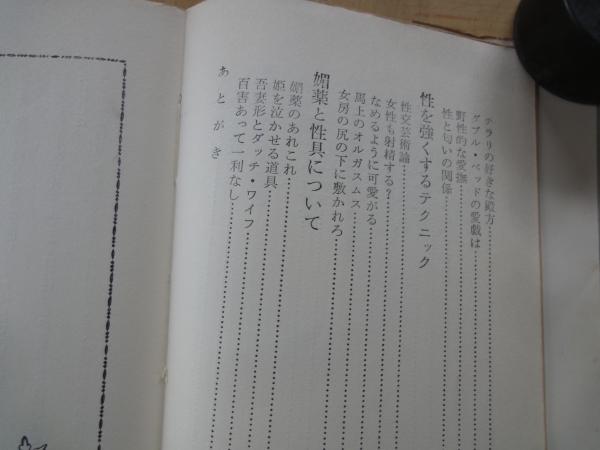 チラリの好きな殿方
ダブル・ベッドの愛戯は
野性的な愛撫
性と匂いの関係
性を強くするテクニック
性交芸術論
女性も射精する?
なめるように可愛がる
馬上のオルガスムス
女房の尻の下に敷かれろ
媚薬と性具について
媚薬のあれこれ
姫を泣かせる道具
吾妻形とダッチ・ワイフ
百害あって一利なし
あとがき